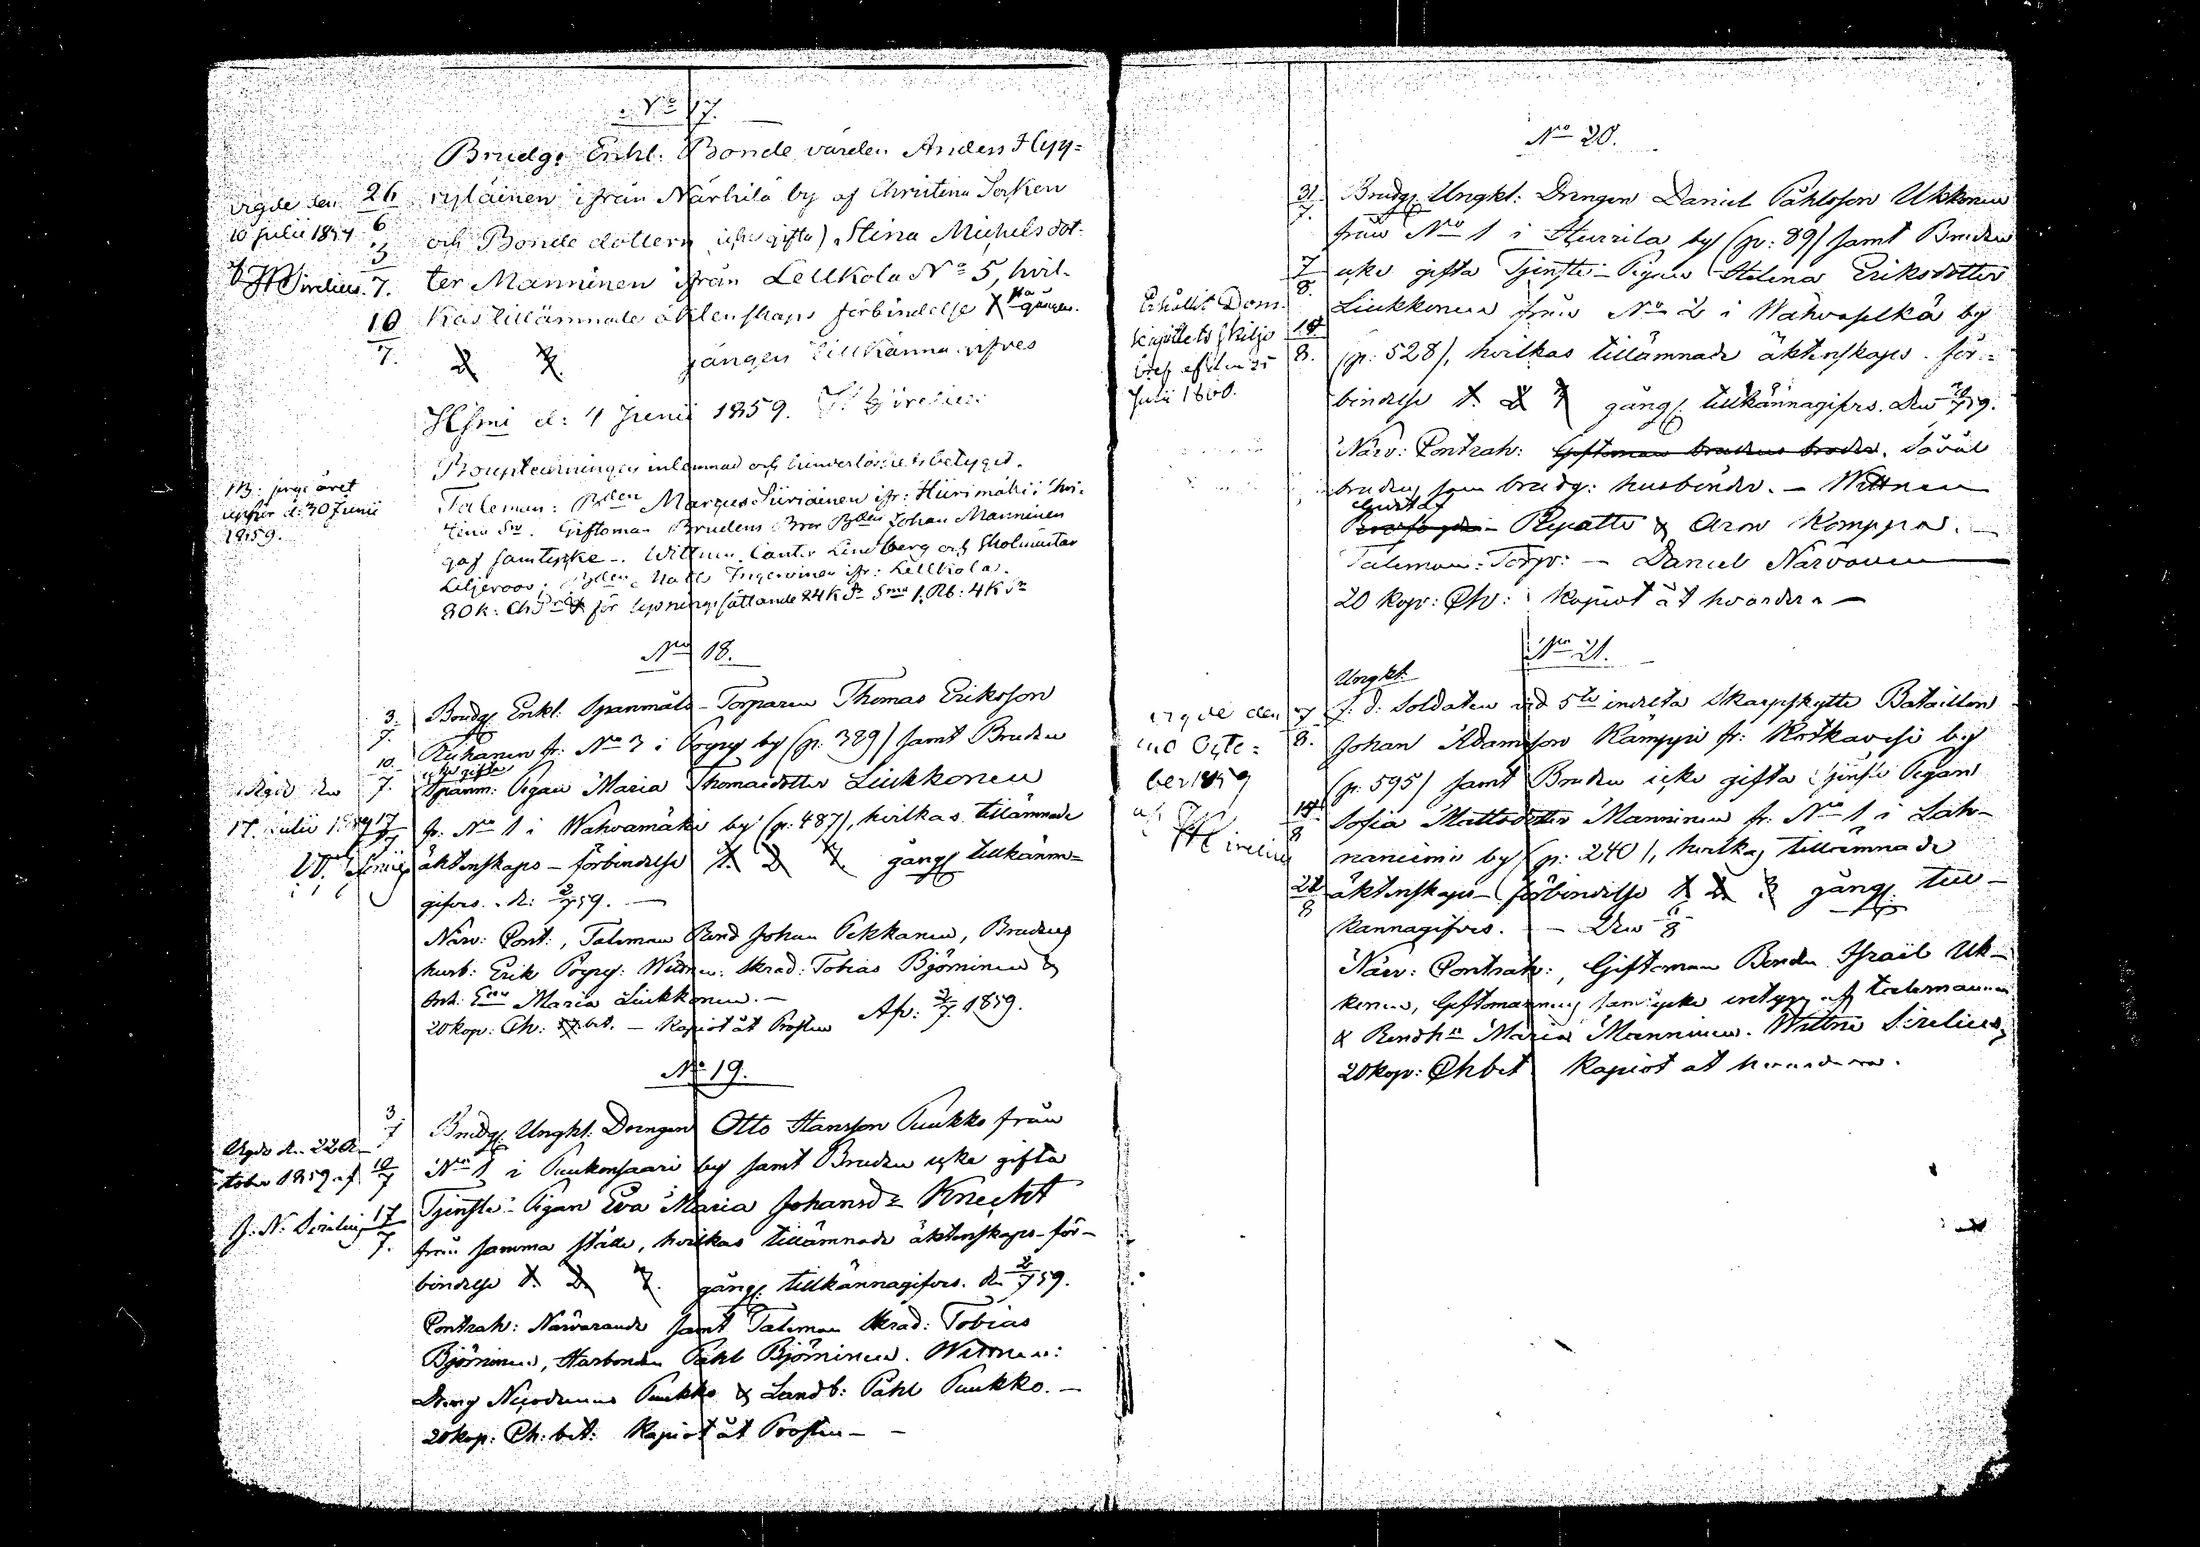 No 17.
Brudg. Enkl. Bonde värden Anders Hyy=
ryläinen ifrån Närhilä by af Christina Socken
och Bonde dottern icke gifta) Stina Michelsdot-
ter Manninen ifrån Lellkola No 5, hvil-
kas tillämnade äktenskaps förbindelse 1 sta gången
2 3. gången tillkänna gifves
d: 4 Junii 1859.
vigde den 10 Julii 1859
26/6
3/7.
10/7.
inlemnad och hinderlöshetsbetyget.
Taleman: Bden Marcus Siiriäinen ifr: Hiirimäki i
Giftoman Brudens Bror Bden Johan Manninen
gaf samtycke. Wittnen Cantor Lindberg och Skolmästar
Liljeroos, ifr: Lellkola.
80 k: Ch för lysnings
30 Junii
1859.
No 18.
3./7.
10./7.
17/7
Brudg. Enkl. Spanmåls-Torparen Thomas Eriksson
No 3 i Pyyry by (p: 389) samt Bruden
icke gifta
Spanm: Pigan Maria Thomasdotter Liukkonen
fr: No 1 i Wahvamäki by (p: 487), hvilkas tillämnade
äktenskaps-förbindelse 1. 2 3 gång. tillkänna-
gifves. d: 2/7 59.
Närv: Cont:, Taleman Bond Johan Pekkanen, Brudens
husb: Erik Pyyry: Wittnen: Skräd: Tobias Björninen &
Enn Maria Liukkonen.
20 kop: Ch: bet. - Kapiot åt Prosten
17. Julii 1859
No 19.
3/7
10/7
17/7.
Brudg. Ungkl: Drengen Otto Hansson Puukko från
No 1 i Puukonsaari by samt Bruden icke gifta
Tjenste-Pigan Eva Maria Johansdr Knecht
från samma ställe, hvilkas tillämnade äktenskaps-för-
bindelse 1. 2 3. gång. tillkännagifves. d. 2/7 59.
Contrah: Närvarande samt Taleman Skräd: Tobias
Björninen, Husbonden Påhl Björninen. Wittnen:
Dreng Nicodemus Puukko & Landb: Påhl Puukko. -
20 kop: Ch: bet: Kapiot åt Prosten -
Vigde d. 22 Oc-
tober 1859 af
J. N. Sirelius
No 20.
31/7.
7/8.
14/8.
Brudg. Ungkl: Drengen Daniel Påhlsson Ukkonen
från No 1 i Hurrila by (p: 89) samt Bruden
icke gifta Tjenste-Pigan Helena Eriksdotter
Liukkonen från No 2 i Wahvaselkä by
(p: 528), hvilkas tillämnade äktenskaps-för-
bindelse 1. 2 3 gång. tillkännagifves.
Närv: Contrah: Giftoman brudens broder. Såväl
bruden, som brudg: husbönder. - Wittnen
Gustaf
Repatti & Aron Komppa. -
Taleman: Torp: - Daniel Närvänen
20 kop: Ch: Kapiot åt hvardera -
Erhållit Dom-
kapitlets skilje
bref af den 25
Julii 1860.
No 21.
Ungkl.
f. d: Soldaten vid 5te indelta Skarpskytte Bataillon
Johan Adamsson Kämppi fr: Kotkavesi by
(p: 595) samt Bruden icke gifta tjenste Pigan
Sofia Mattsdotter Manninen fr: No 1 i Lah-
naniemi by (p: 240), hvilkas tillämnade
äktenskaps-förbindelse 1 2. 3 gång. till-
kännagifves. - Den 6/8
Närv: Contrah:, Giftoman Bonden Israil Uk-
konen, Giftomannens samtycke intyg. af talemannen
& Bondhn Maria Manninen. Wittne Sirelius,
20 kop: Ch bet Kapiot åt hvardera.
vigde den
7/8.
14/8
21/8